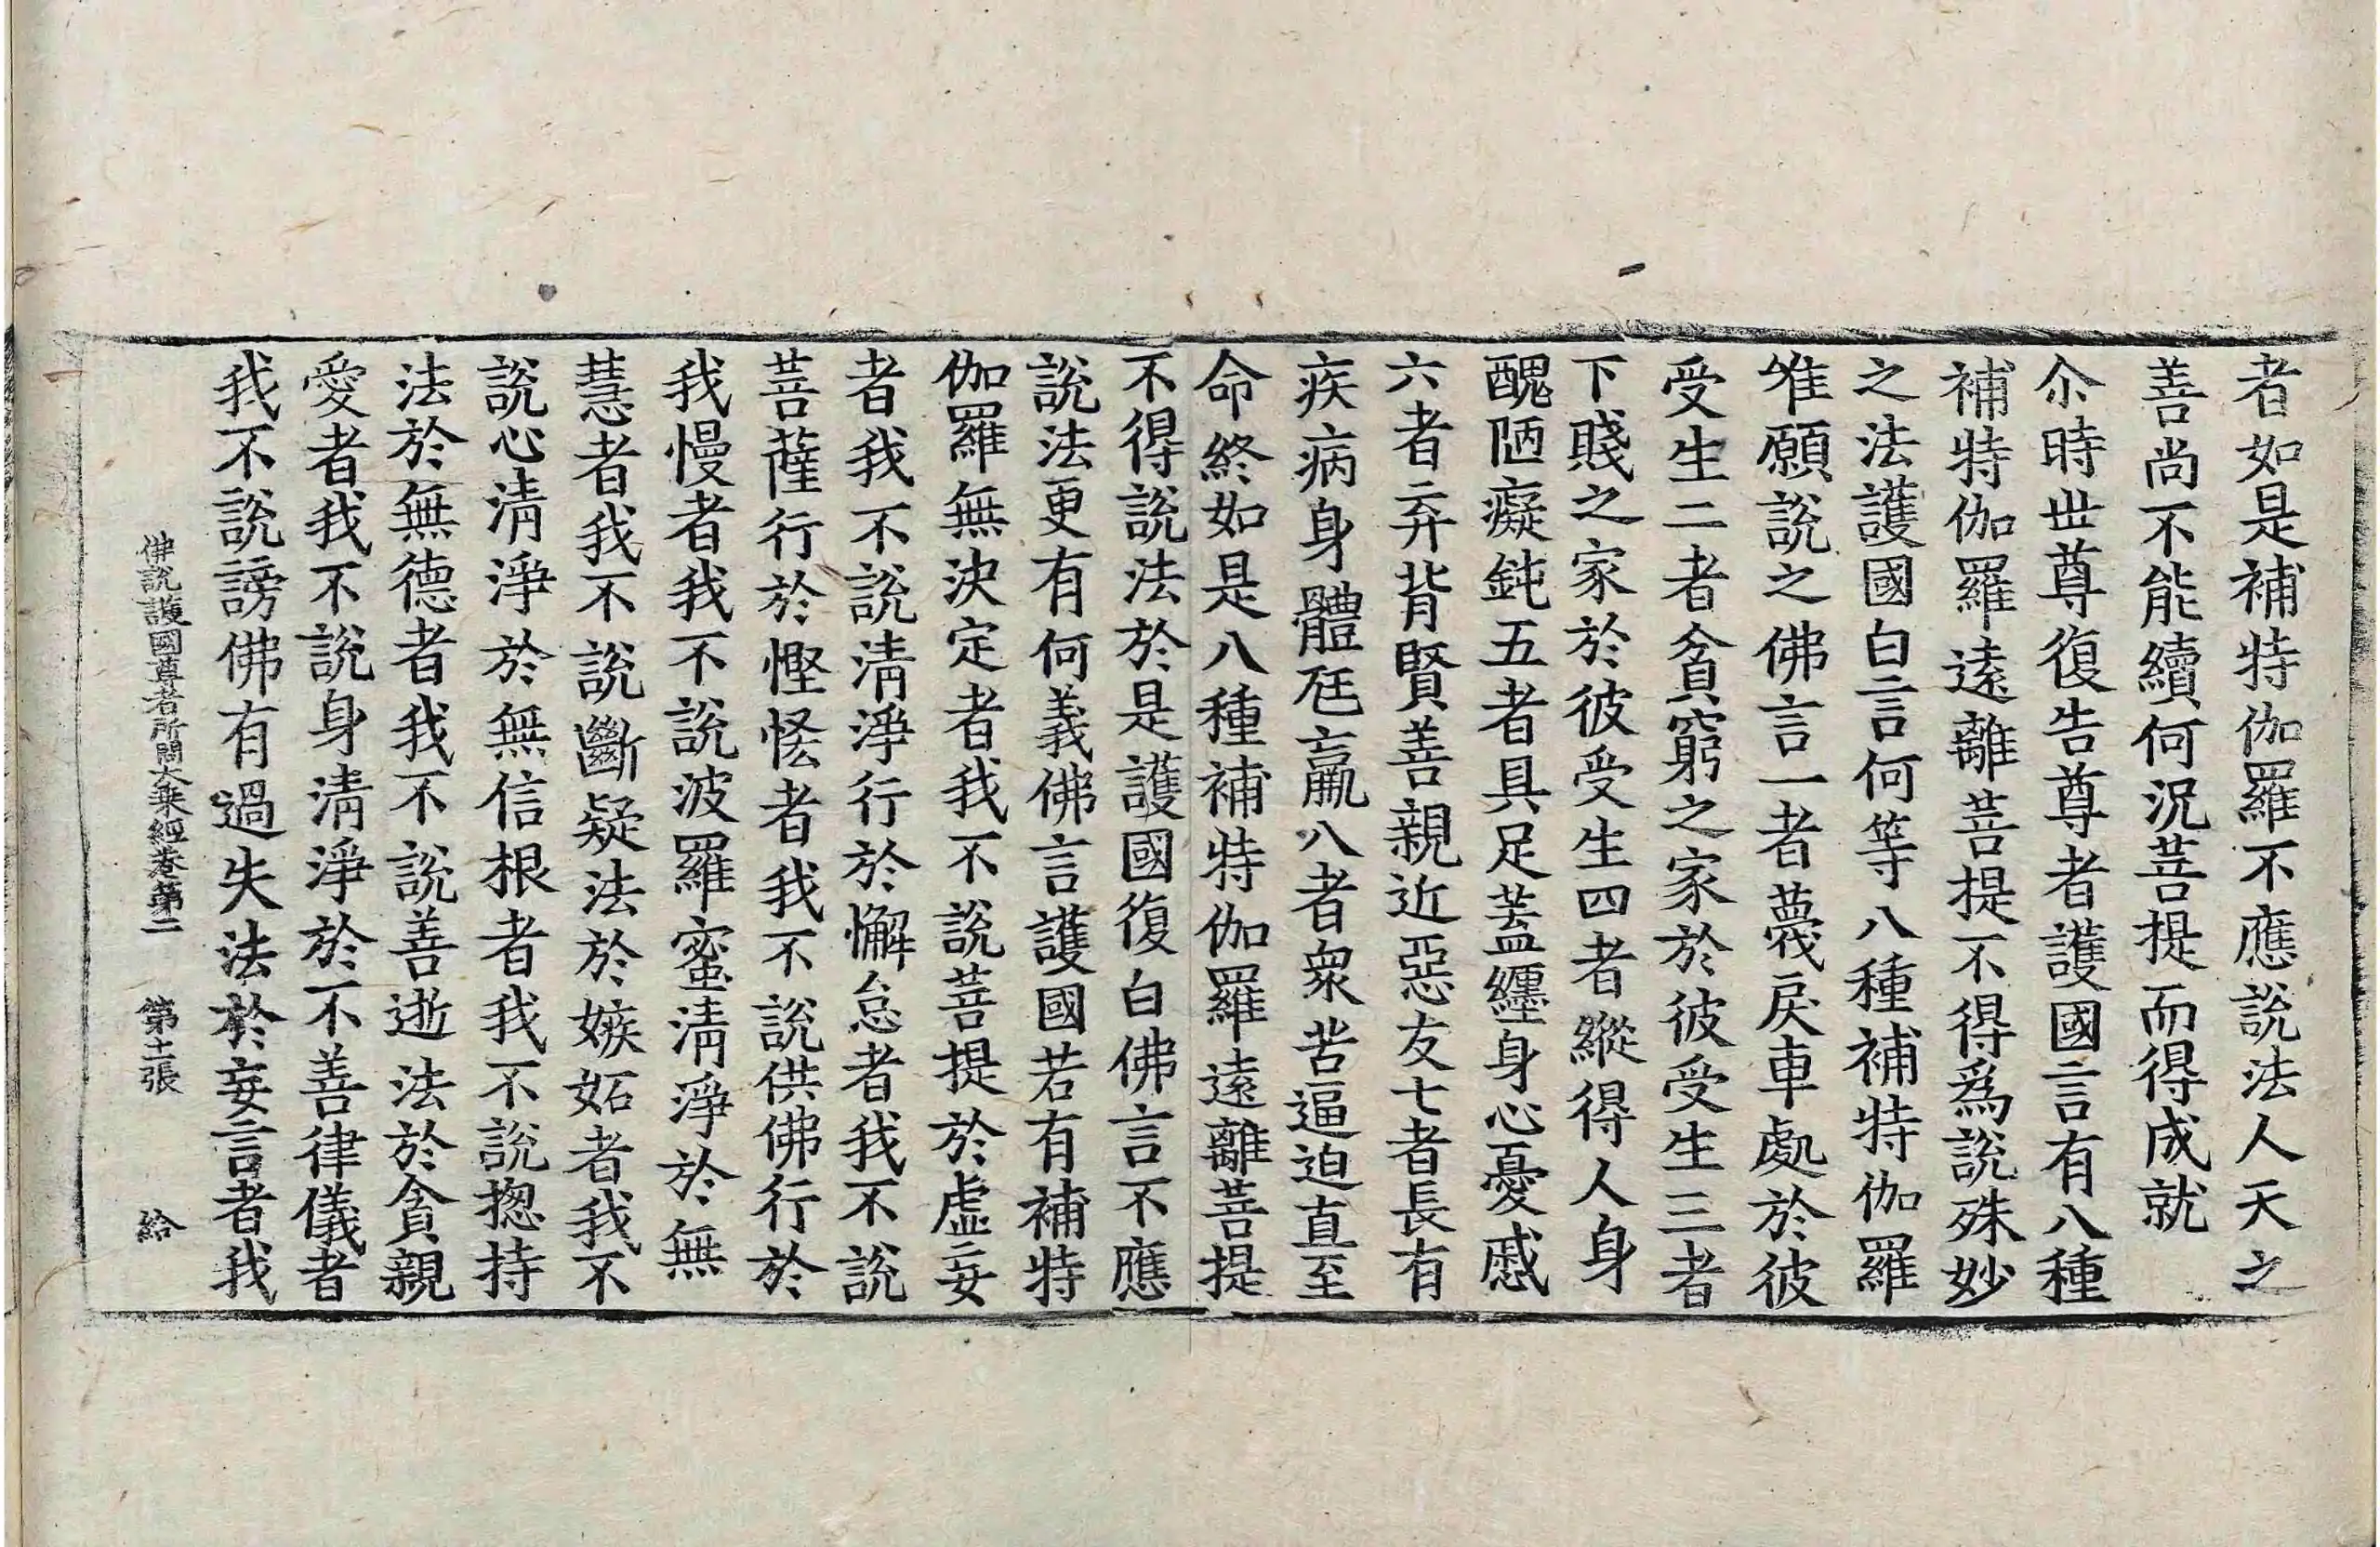 者如是補特伽羅不應說法人天之
善尚不能續何況菩提而得成就
尒時世尊復告尊者護國言有八種
補特伽羅遠離菩提不得爲說殊妙
之法護國白言何等八種補特伽羅
唯願說之佛言一者薎戾車處於彼
受生二者貧窮之家於彼受生三者
下賤之家於彼受生四者縱得人身
醜陋癡鈍五者具足蓋纏身心憂慼
六者弃背賢善親近惡友七者長有
疾病身體尫羸八者衆苦逼迫直至
命終如是八種補特伽羅遠離菩提
不得說法於是護國復白佛言不應
說法更有何義佛言護國若有補特
伽羅無決定者我不說菩提於虛妄
者我不說清淨行於懈怠者我不說
菩薩行於慳恡者我不說供佛行於
我慢者我不說波羅蜜清淨於無
慧者我不說斷疑法於嫉妬者我不
說心清淨於無信根者我不說揔持
法於無德者我不說善逝法於貪親
愛者我不說身清淨於不善律儀者
我不說謗佛有過失法於妄言者我
佛說護國尊者所問大乗經卷第二 第十二張 給